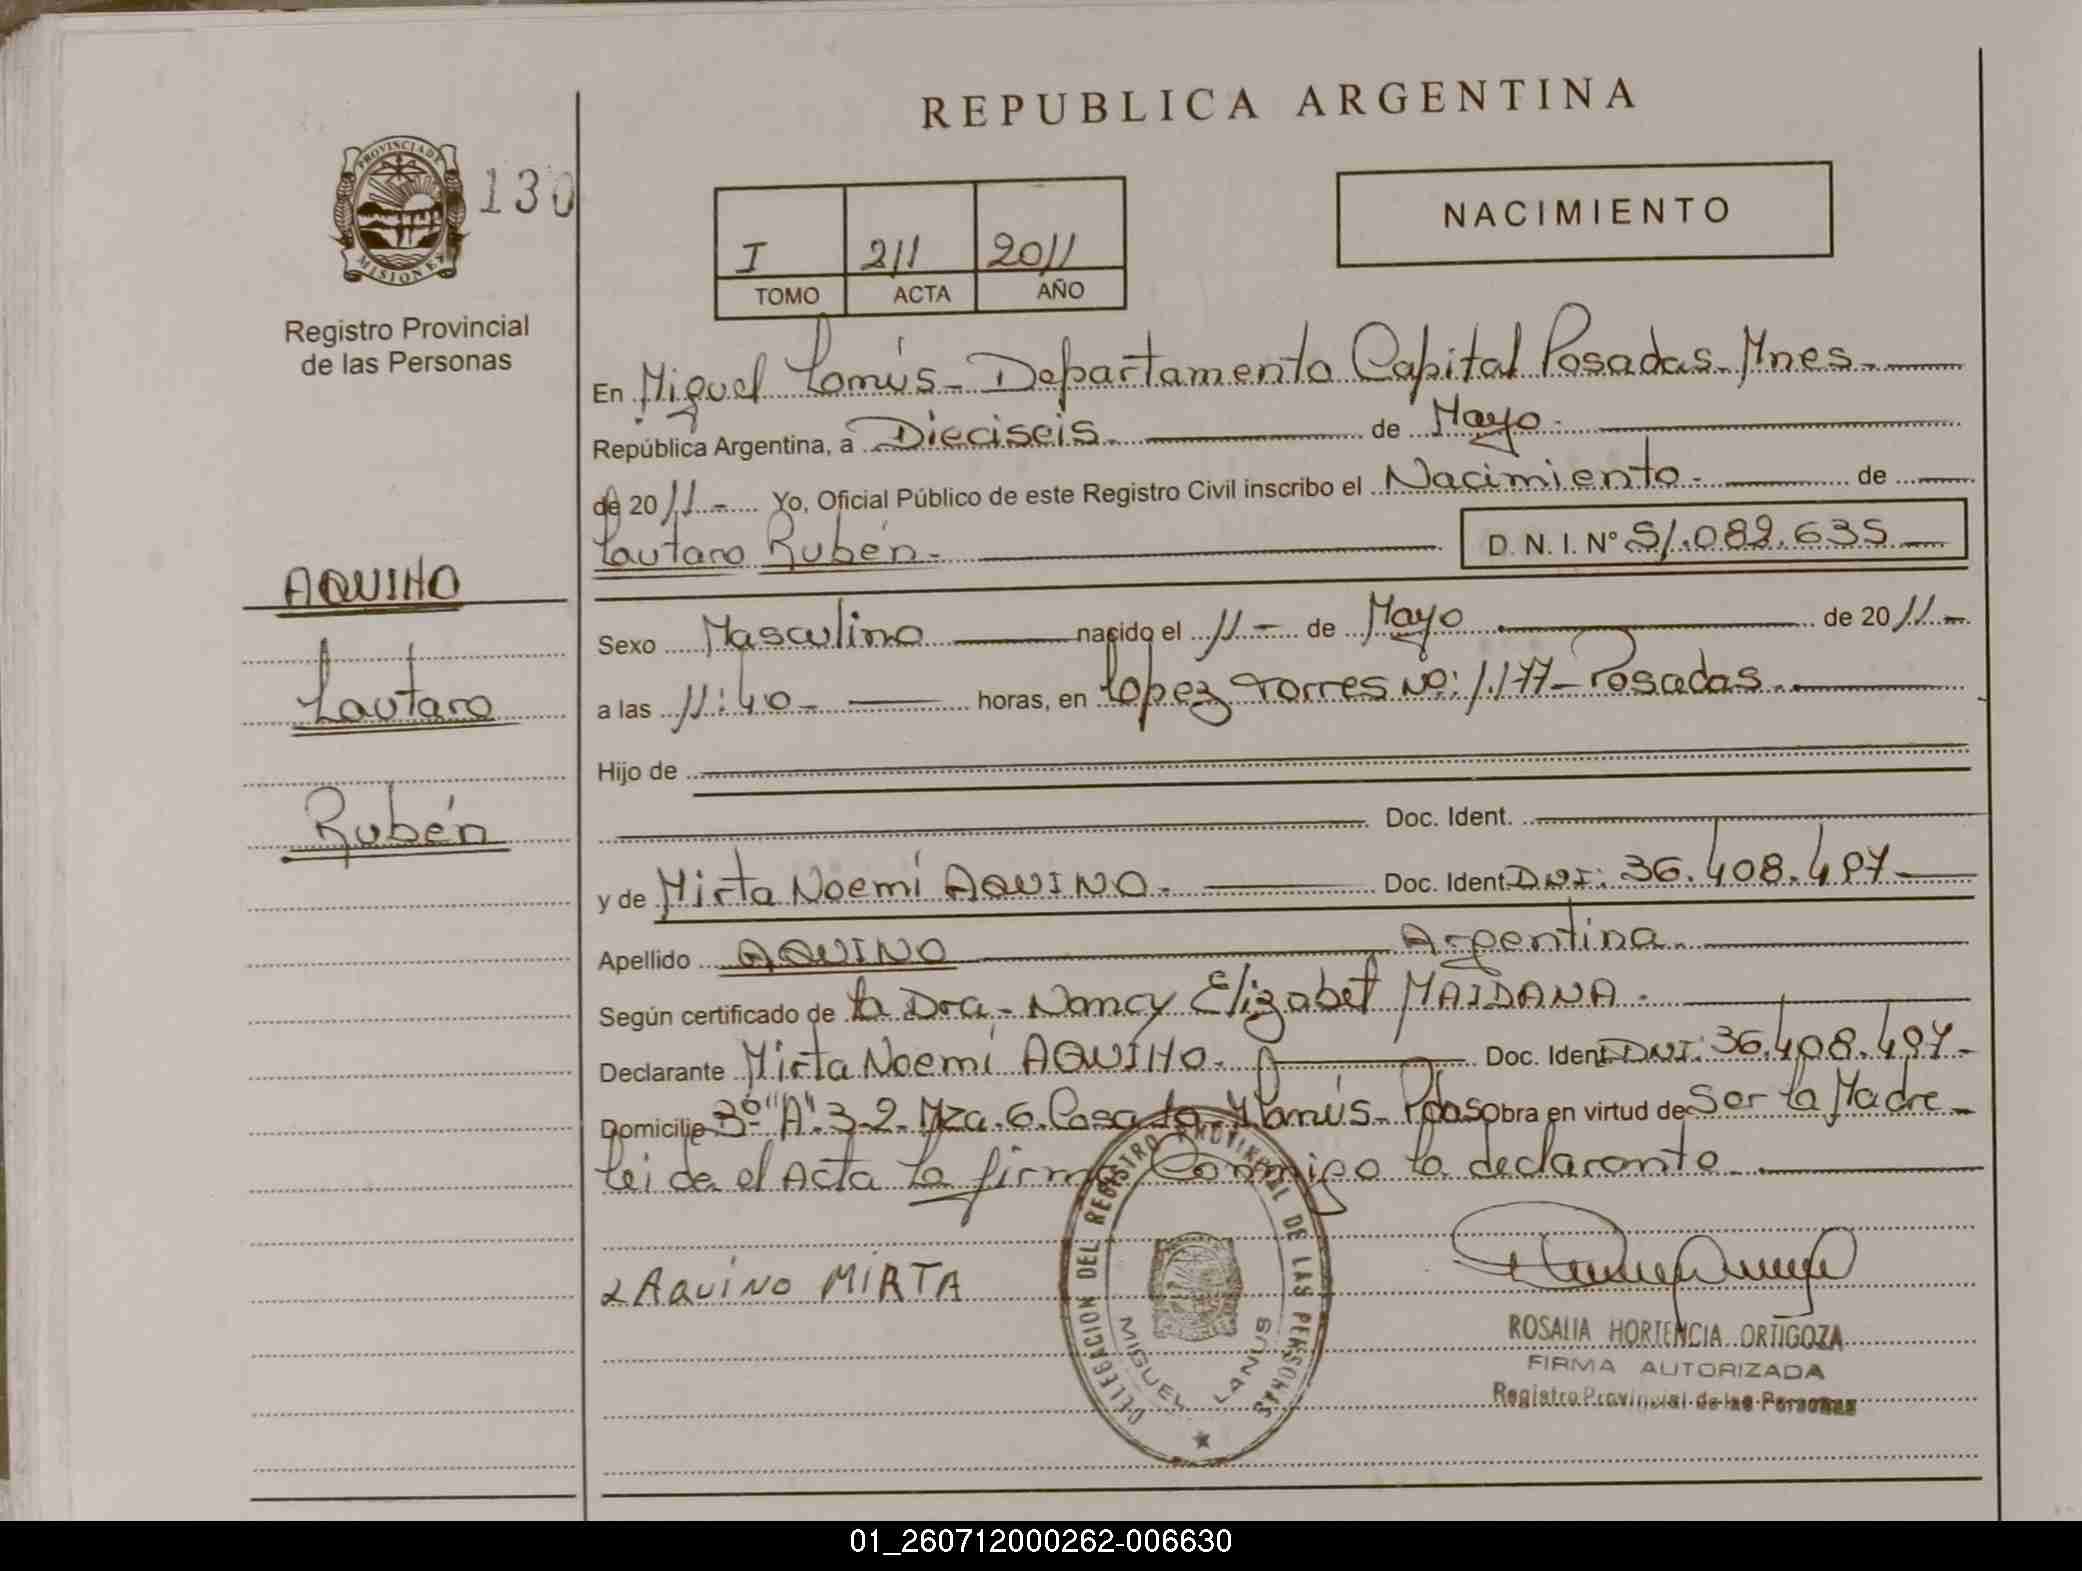 REPUBLICA ARGENTINA
PROVINCIA DE
MISIONES
130
NACIMIENTO
I 211 2011
TOMO ACTA AÑO
Registro Provincial
de las Personas
En Miguel Lanús - Departamento Capital Posadas - Mnes.
República Argentina, a Dieciseis. de Mayo.
de 2011.- Yo, Oficial Público de este Registro Civil inscribo el Nacimiento. de
Lautaro Rubén. D. N. I. N° 51.082.635
AQUINO
Lautaro
Rubén
Sexo Masculino nacido el 11 - de Mayo de 2011 -
a las 11:40 - horas, en López Torres No: 1.177 - Posadas.
Hijo de
Doc. Ident.
y de Mirta Noemí AQUINO. Doc. Ident. DNI: 36.408.497
Apellido AQUINO Argentina.
Según certificado de la Dra. Nancy Elizabet MAIDANA.
Declarante Mirta Noemí AQUINO. Doc. Ident. DNI: 36.408.497 -
Domicilio 3º "A" 32 Mza. 6. Casa Lanús - Pdas Obra en virtud de Ser la Madre
leida el Acta la firma Conmigo la declarante.
AQUINO MIRTA
DELEGACION DEL REGISTRO PROVINCIAL DE LAS PERSONAS
MIGUEL LANUS
ROSALIA HORTENCIA ORTIGOZA
FIRMA AUTORIZADA
Registro Provincial de las Personas
01_260712000262-006630